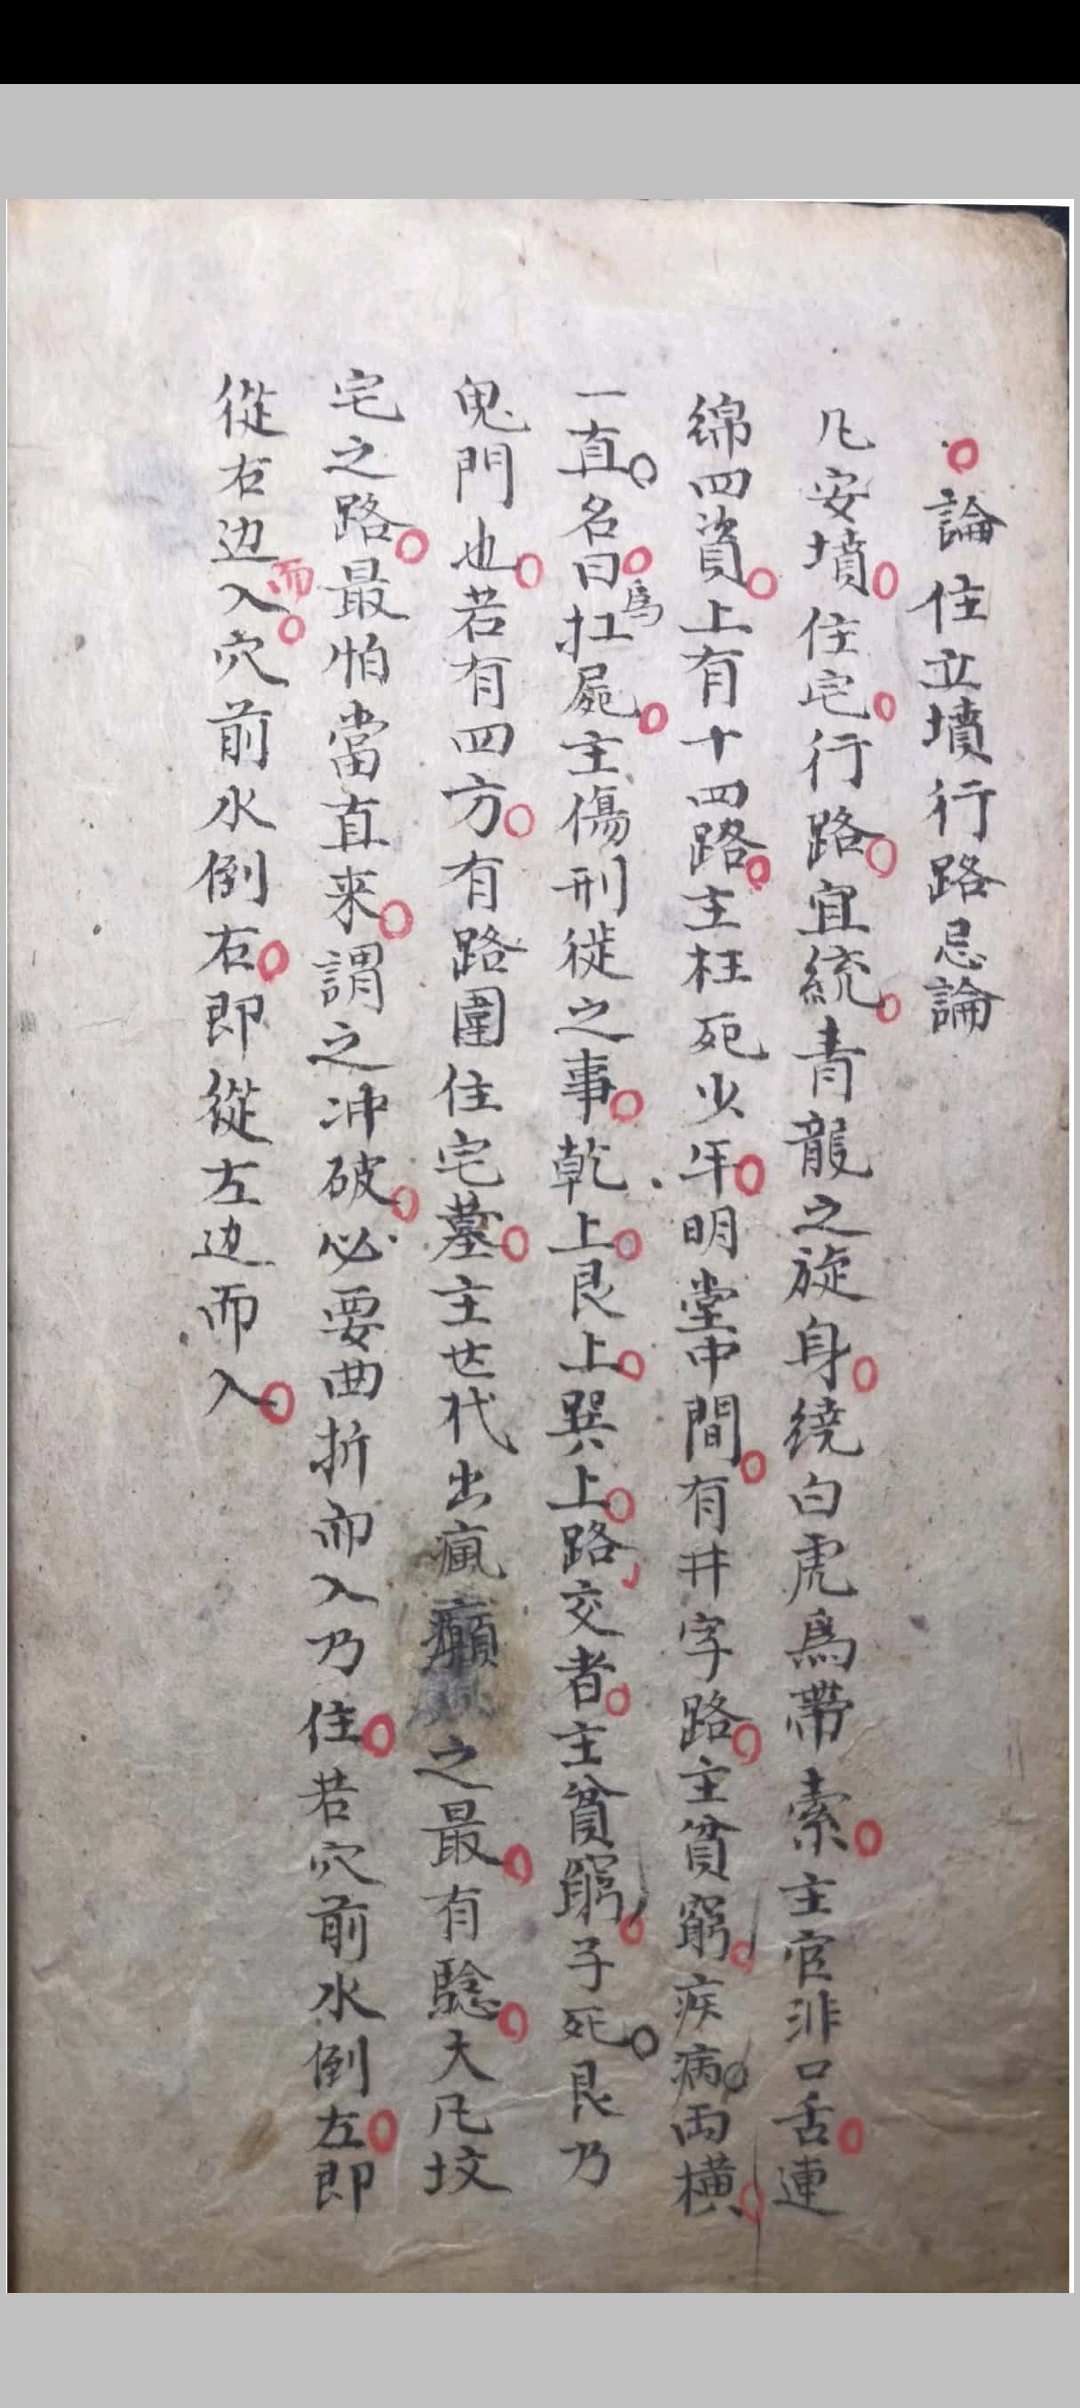 論住立墳行路忌論
凡安墳住宅行路宜統青龍之旋身繞白虎爲帶索主官非口舌連
綿四資上有十四路主枉死少年明堂中間有井字路主貧窮疾病兩橫
一直名曰爲扛屍主傷刑徙之事乾上艮上巽上路交者主貧窮子死艮乃
鬼門也若有四方有路圍住宅墓主世代出瘋癲之最有驗大凡坟
宅之路最怕當直来謂之冲破必要曲折而入乃住若穴前水倒左即
從右边而入穴前水倒右即從左边而入